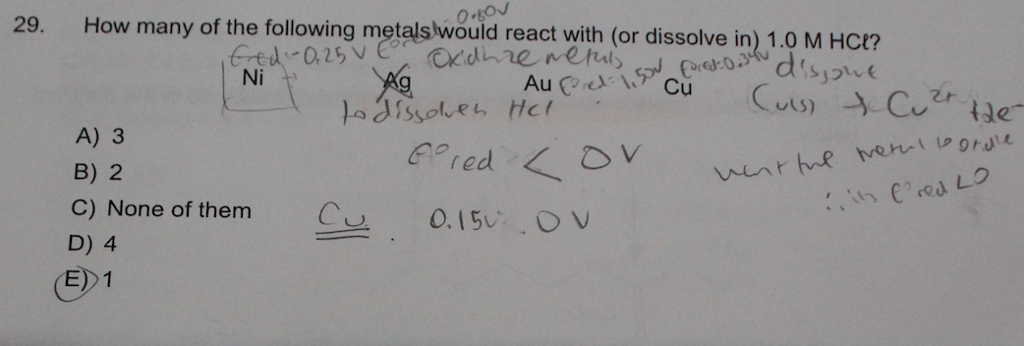 29. How many of the following metals would react with (or dissolve in) 1.0 M HCℓ?
0.80V
E°red = -0,25 V Oxidize metals
Ni Ag Au E°red = 1,50V Cu E°red = 0.34V dissolve
to dissolves HCl Cu(s) → Cu²⁺ + 2e⁻
E°red < 0V
want the metal to
∴ in E°red < 0
A) 3
B) 2
C) None of them
Cu 0.15V 0V
D) 4
E) 1